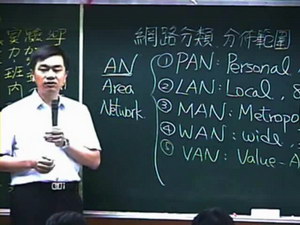 網路分類 分佈範圍
AN
Area
Network
① PAN: Personal
② LAN: Local, 8
③ MAN: Metropo
④ WAN: wide,
⑤ VAN: Value-A